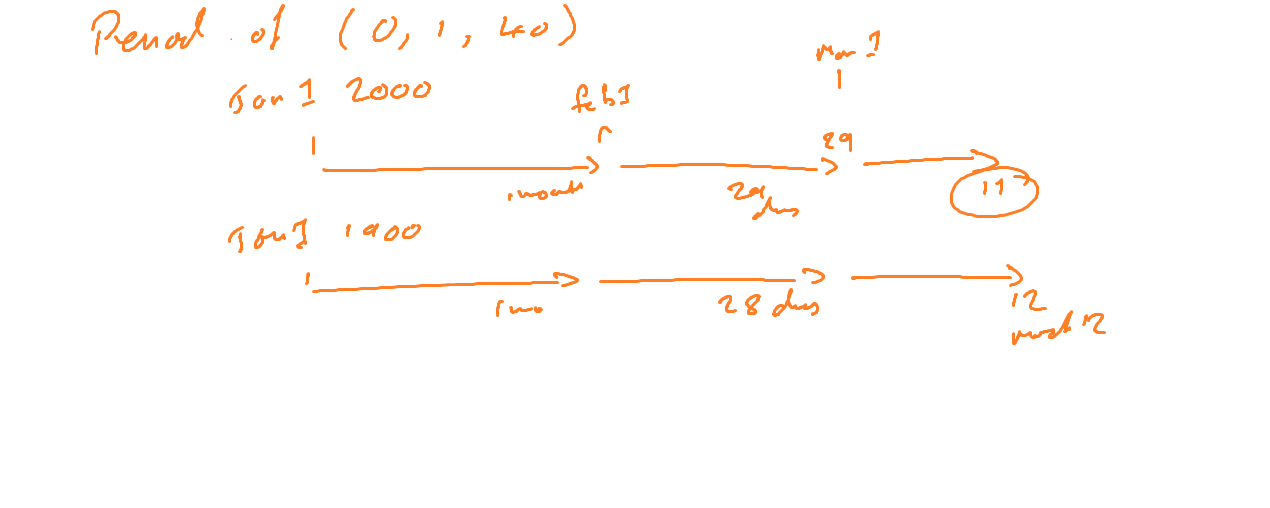 Period of (0, 1, 40)
Mar 1
Jan 1 2000
feb 1
29
1 month
29 days
11
Jan 1 1900
1 mo
28 days
12
march 12